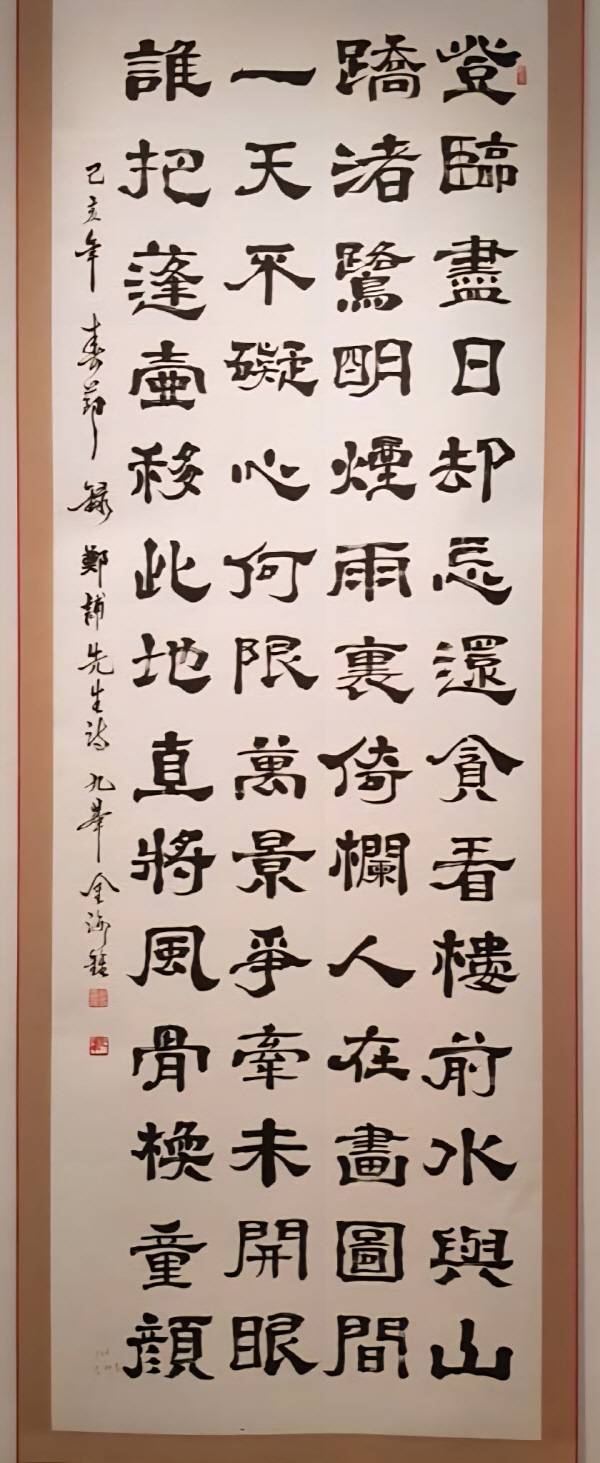 登臨盡日却忘還貪看樓前水與山
蹻渚鷺明煙雨裏倚欄人在畫圖間
一天不礙心何限萬景爭牽未開眼
誰把蓬壺移此地直將風骨換童顔
己亥年 春節 錄 鄭誧先生詩 九峯 金海